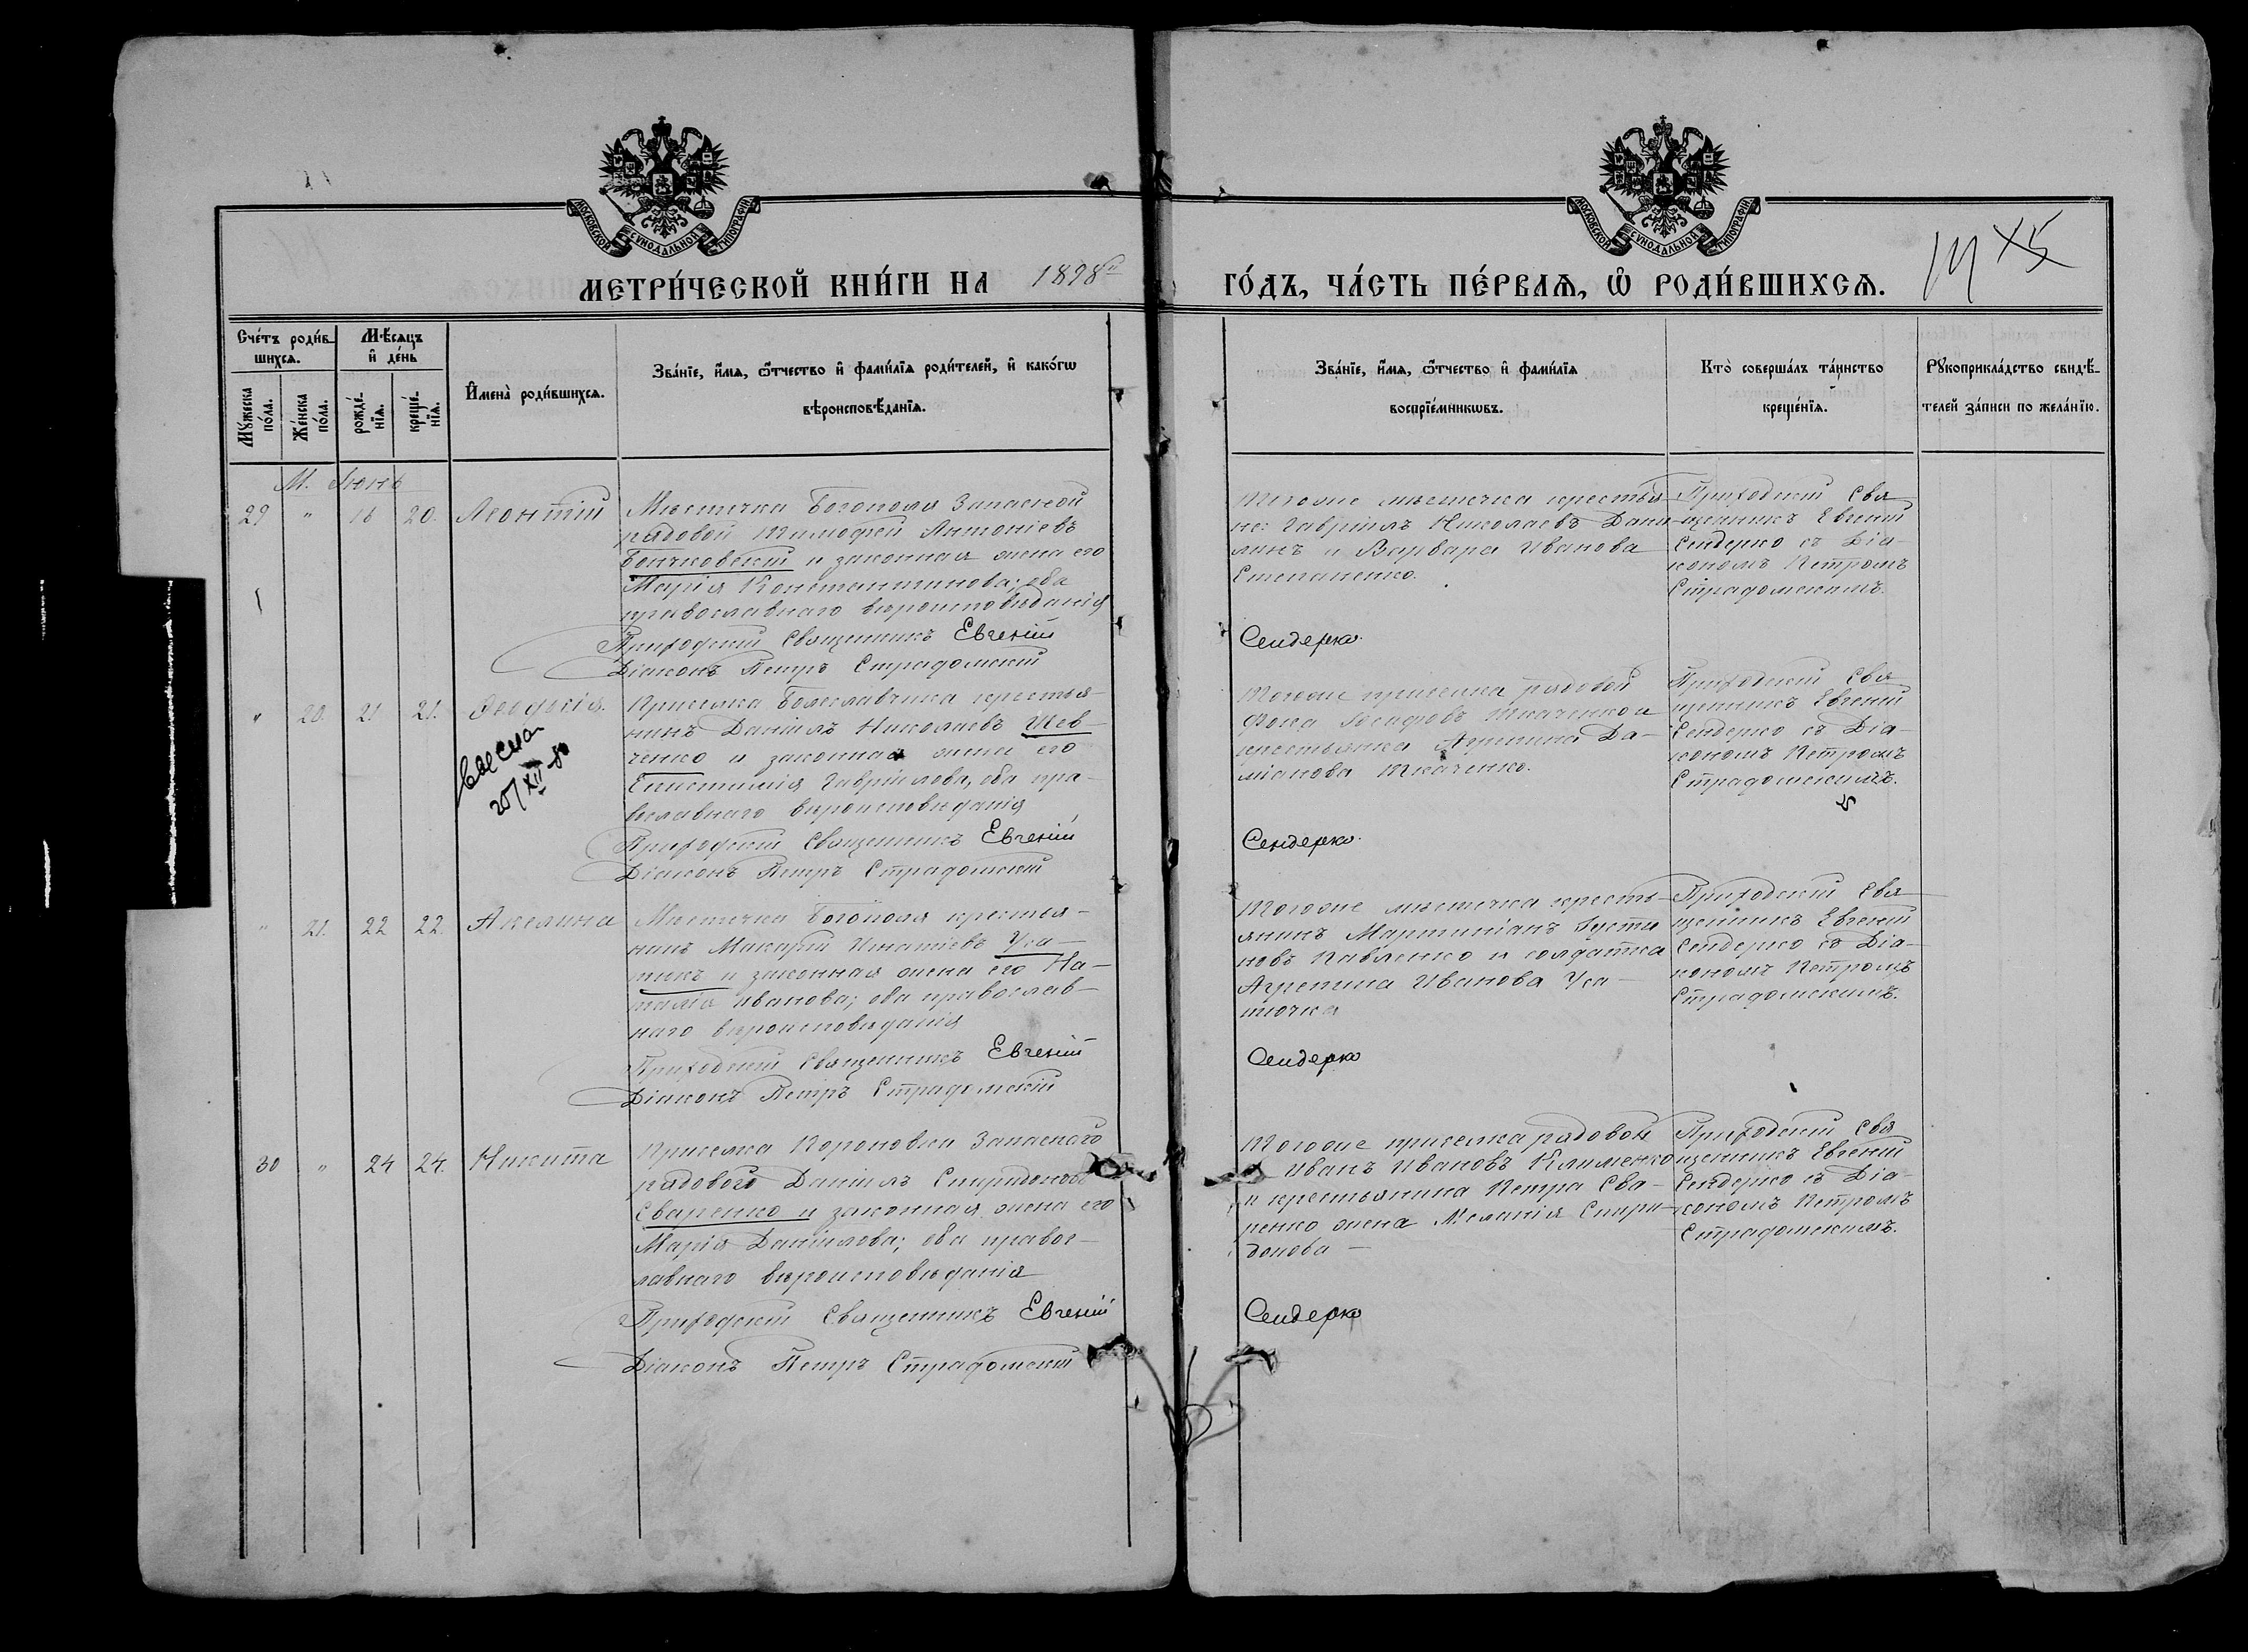 МОСКОВСКОЙ СѴНОДАЛЬНОЙ ТИПОГРАФІИ
МОСКОВСКОЙ СѴНОДАЛЬНОЙ ТИПОГРАФІИ
МЕТРИ́ЧЕСКОЙ КНИ́ГИ НА 1898й ГО́ДЪ, ЧА́СТЬ ПЕ́РВАЯ, Ѡ РОДИ́ВШИХСЯ.
Сче́тъ роди́в-
шихся.
Мѣ́сяцъ
и҆ де́нь
Мꙋ́жеска по́ла.
Же́нска по́ла.
рожде́-
нїя.
креще́-
нїя.
И҆мена̀ роди́вшихся.
Зва́нїе, и҆́мя, ѻ҆́тчество и҆ фами́лїя роди́телей, и҆ како́гѡ
вѣроисповѣ́данїя.
Зва́нїе, и҆́мя, ѻ҆́тчество и҆ фами́лїя
воспрїе́мникѡвъ.
Кто̀ соверша́лъ та́инство
креще́нїя.
Рꙋкоприкла́дство свидѣ́-
телей за́писи по жела́нїю.
М. Іюнь
29 " 16 20. Леонтій
Мѣстечка Богополя Запасной
рядовой Тимофей Антоніевъ
и законная жена его
Марія Константинова; оба
православнаго вѣроисповѣданія
Приходскій Священникъ Евгеній
Діаконъ Петръ Страдомскій
Тогоже мѣстечка крестья-
не: Гавріилъ Николаевъ Дани-
и Варвара Иванова
Степаненко.
Сендерко.
Приходскій Свя-
щенникъ Евгеній
Сендерко съ Діа-
кономъ Петромъ
Страдомскимъ.
" 20. 21 21. Ѳеодосія.
25/XII
Приселка Болеславчика крестья-
нинъ Даніилъ Николаевъ Шев-
ченко и законная жена его
Епистимія Гавріилова, оба пра-
вославнаго вѣроисповѣданія
Приходскій Священникъ Евгеній
Діаконъ Петръ Страдомскій
Тогоже приселка рядовой
Фока Іосифовъ Ткаченко и
крестьянка Агрипина Да-
міанова Ткаченко.
Сендерко.
Приходскій Свя-
щенникъ Евгеній
Сендерко съ Діа-
кономъ Петромъ
Страдомскимъ.
" 21. 22 22. Акелина
Мѣстечка Богополя крестья-
нинъ Макарій Игнатіевъ Уса-
тюкъ и законная жена его На-
талія Иванова; оба православ-
наго вѣроисповѣданія
Приходскій Священникъ Евгеній
Діаконъ Петръ Страдомскій
Тогоже мѣстечка кресть-
янинъ Мартиніанъ Іусти-
новъ Павленко и солдатка
Агрепина Иванова Уса-
тючка
Сендерко
Приходскій Свя-
щенникъ Евгеній
Сендерко съ Діа-
кономъ Петромъ
Страдомскимъ.
30 " 24 24. Никита
Приселка Запаснаго
рядового Даніилъ Спиридоновъ
Сваренко и законная жена его
Марія Даніилова; оба правос-
лавнаго вѣроисповѣданія
Приходскій Священникъ Евгеній
Діаконъ Петръ Страдомскій
Тогоже приселка рядовой
Иванъ Ивановъ Клименко
и крестьянина Петра Сва-
ренко жена Меланія Спири-
донова
Сендерко
Приходскій Свя-
щенникъ Евгеній
Сендерко съ Діа-
кономъ Петромъ
Страдомскимъ.